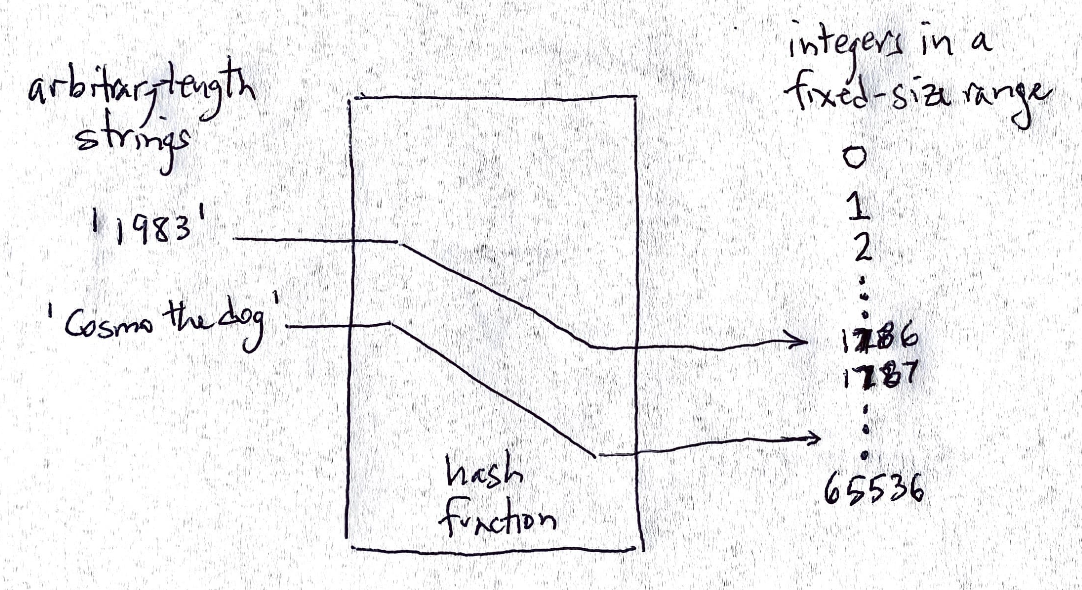 arbitrary-length
strings
'1983'
'Cosmo the dog'
hash
function
integers in a
fixed-size range
0
1
2
1786
1787
65536